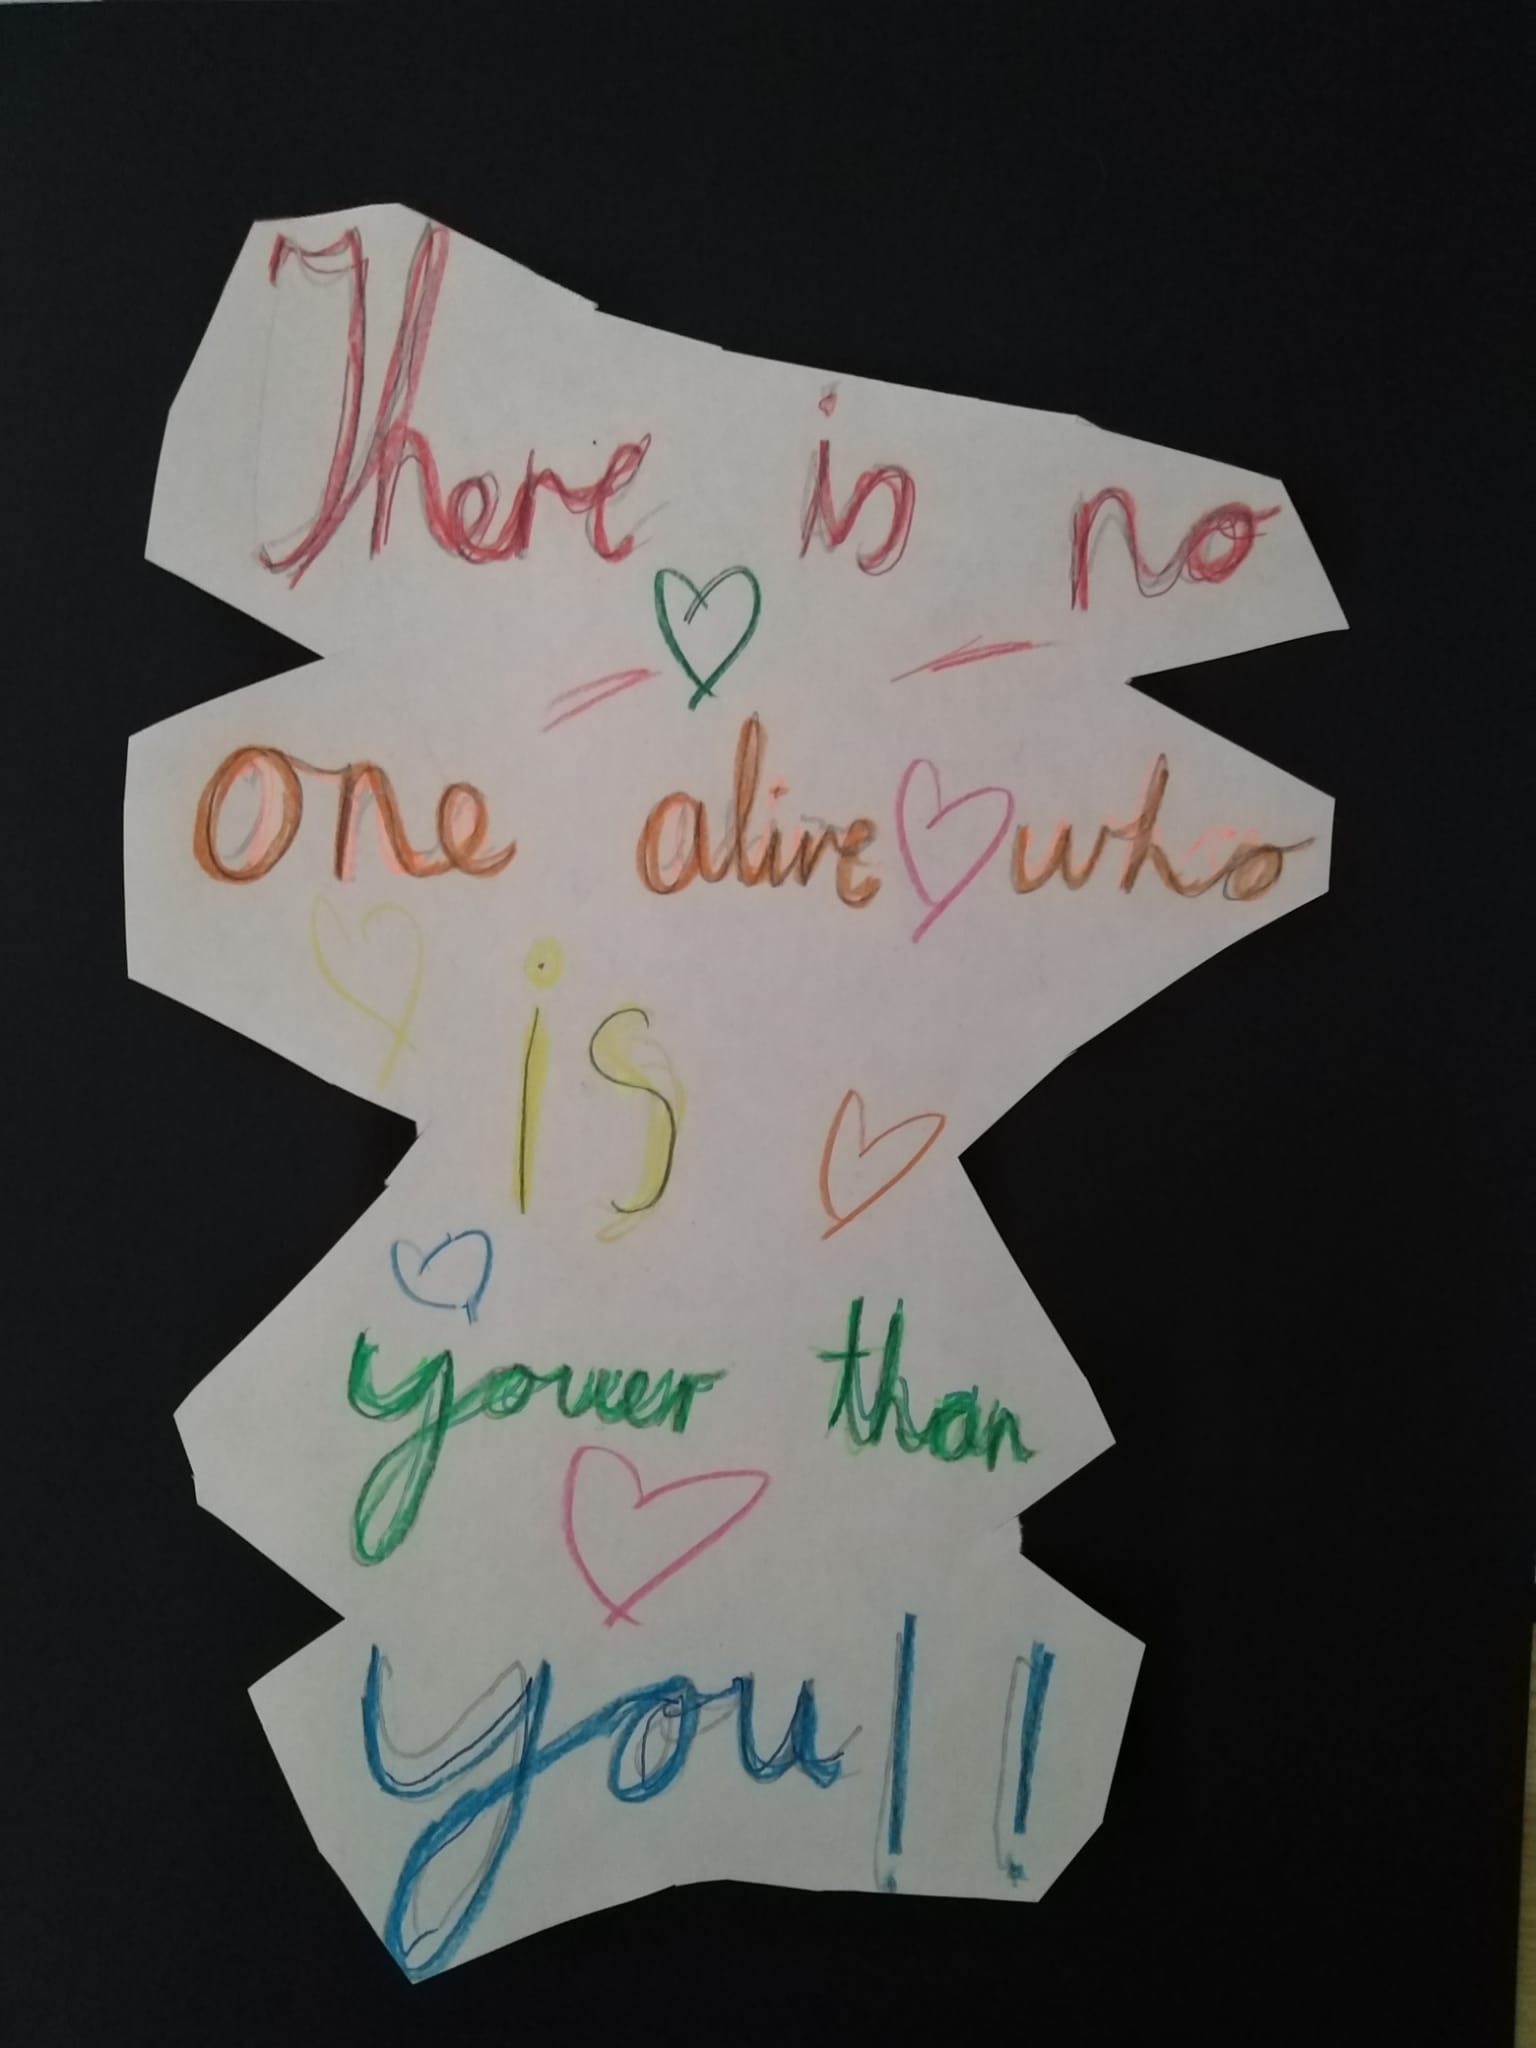 There is no
one alive who
is
youer than
you!!